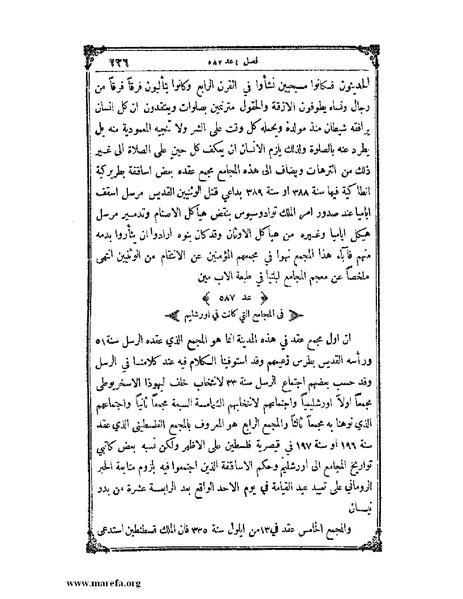 فصل ١ عد ٥٨٧ ٢٣٦
المدينون فكانوا مسيحيين نشأوا في القرن الرابع وكانوا يتألبون فرقاً فرقاً من
رجال ونساء يطوفون الازقة والحقول مترنمين بصلوات ويعتقدون ان كل انسان
يرافقه شيطان منذ مولده ويحمله كل وقت على الشر ولا تنجيه المعمودية منه بل
يطرد عنه بالصلوة ولذلك يلزم الانسان ان يعكف كل حين على الصلاة الى غير
ذلك من الترهات ويضاف الى هذه المجامع مجمع عقده بعض اساقفة بطريركية
انطاكية فيها سنة ٣٨٨ او سنة ٣٨٩ بداعي قتل الوثنيين القديس مرسل اسقف
اباميا عند صدور امر الملك توادوسيوس بنقض هياكل الاصنام وتدمير مرسل
هيكل اباميا وغيره من هياكل الاوثان وقد كان بنوه ارادوا ان يثأروا بدمه
منهم فآباء هذا المجمع نهوا في مجمعهم المؤمنين عن الانتقام من الوثنيين انتهى
ملخصاً عن معجم المجامع لبلتيا في طبعة الاب مين
﴿ عد ٥٨٧ ﴾
﴿ في المجامع التي كانت في اورشليم ﴾
ان اول مجمع عقد في هذه المدينة انما هو المجمع الذي عقده الرسل سنة ٥١
ورأسه القديس بطرس زعيمهم وقد استوفينا الكلام فيه عند كلامنا في الرسل
وقد حسب بعضهم اجتماع الرسل سنة ٣٣ لانتخاب خلف ليهوذا الاسخريوطي
مجمعاً اولاً اورشليمياً واجتماعهم لانتخابهم الشمامسة السبعة مجمعاً ثانياً واجتماعهم
الذي نوهنا به مجمعاً ثالثاً والمجمع الرابع هو المعروف بالمجمع الفلسطيني الذي عقد
سنة ١٩٦ او سنة ١٩٧ في قيصرية فلسطين على الاظهر ولكن نسبه بعض كاتبي
تواريخ المجامع الى اورشليم وحكم الاساقفة الذين اجتمعوا فيه بلزوم متابعة الحبر
الروماني على تعييد عيد القيامة في يوم الاحد الواقع بعد الرابعة عشرة من بدر
نيسان
والمجمع الخامس عقد في ١٣ من ايلول سنة ٣٣٥ فان الملك قسطنطين استدعى
www.marefa.org